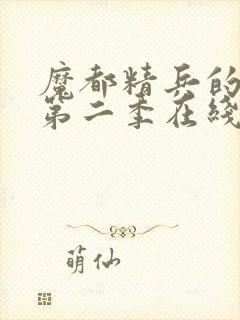 魔都精兵的
第二季在线
萌仙